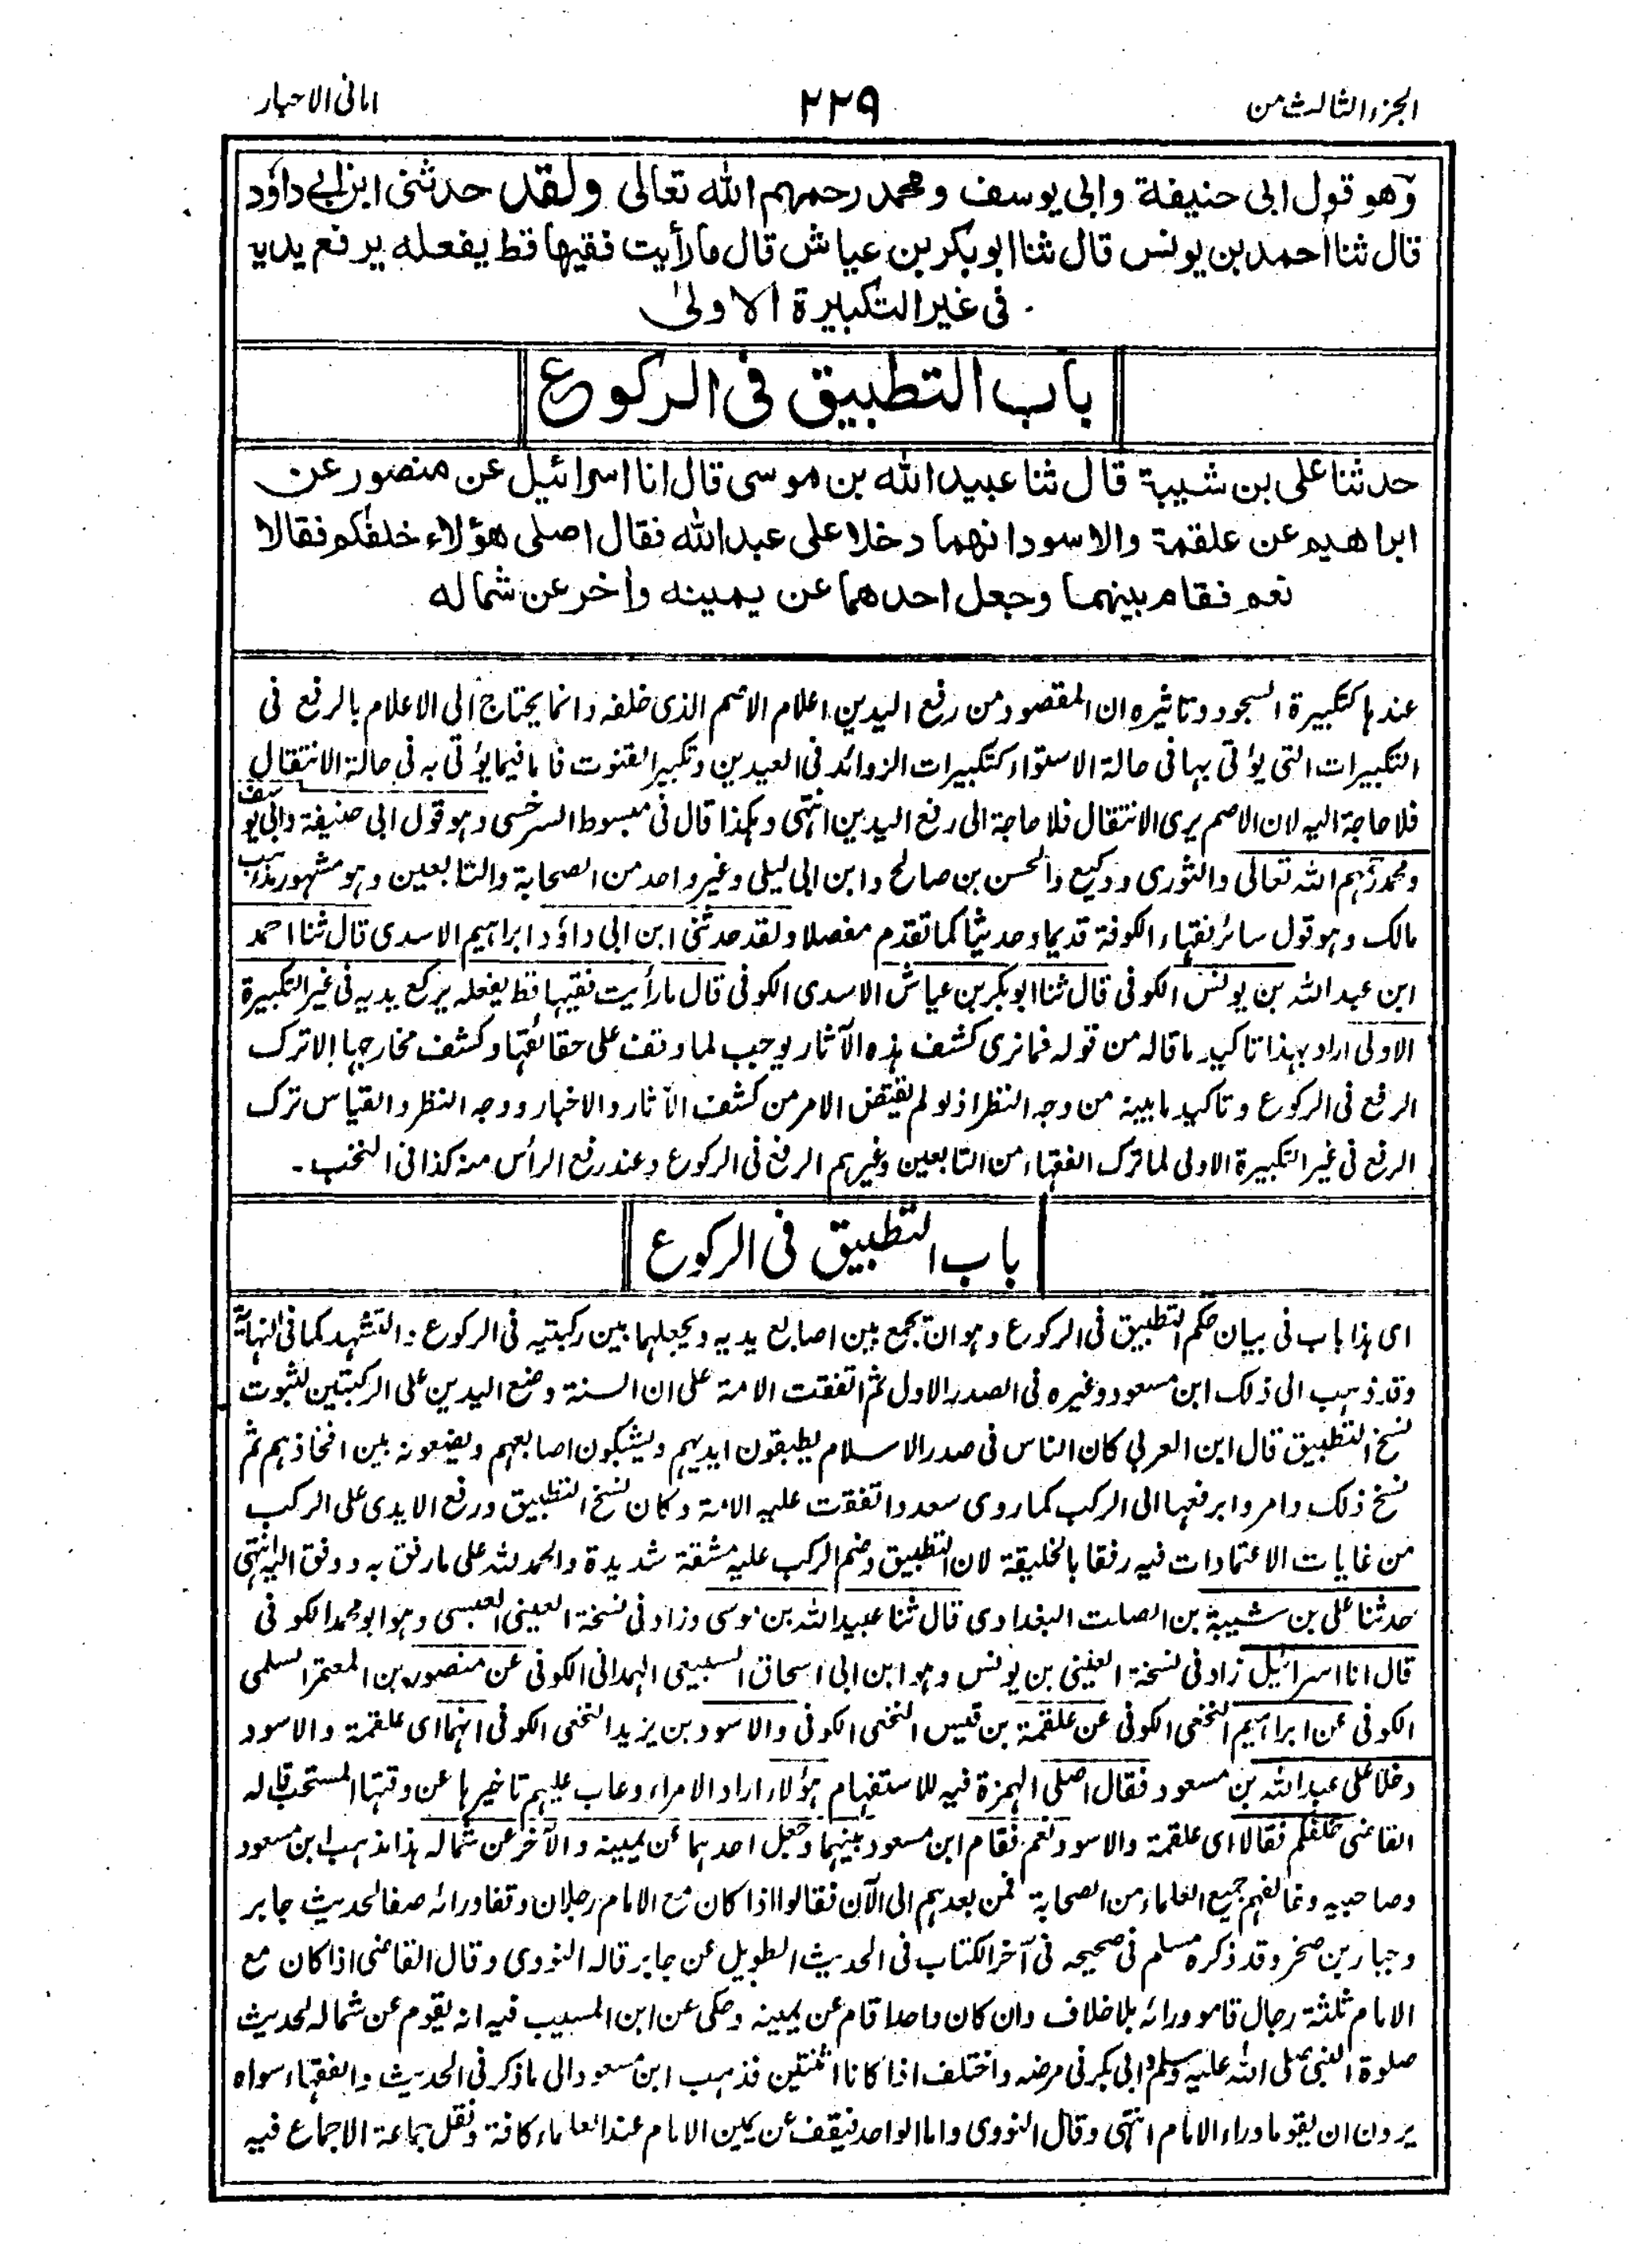 الجزء الثالث من
۲۲۹
امانی الاحبار
وهو قول ابی حنیفة وابی یوسف ومحمد رحمهم الله تعالی ولقد حدثنی ابن ابی داؤد
قال ثنا احمد بن یونس قال ثنا ابوبکر بن عیاش قال ما رأیت فقیها قط یفعله یرفع یدیه
فی غیر التکبیرة الاولیٰ
باب التطبیق فی الرکوع
حدثنا علی بن شیبة قال ثنا عبید الله بن موسی قال انا اسرائیل عن منصور عن
ابراهیم عن علقمة والاسود انهما دخلا علی عبد الله فقال اصلی هؤلاء خلفکم فقالا
نعم فقام بینهما وجعل احدهما عن یمینه واٰخر عن شماله
عندها کتکبیرة السجود وتاثیره ان المقصود من رفع الیدین اعلام الاصم الذی خلفه وانما یحتاج الی الاعلام بالرفع فی
التکبیرات التی یؤتی بها فی حالة الاستواء کتکبیرات الزوائد فی العیدین وتکبیر القنوت فاما فیما یؤتی به فی حالة الانتقال
فلا حاجة الیه لان الاصم یری الانتقال فلا حاجة الی رفع الیدین انتهی وهکذا قال فی مبسوط السرخسی وهو قول ابی حنیفة وابی یوسف
ومحمد رحمهم الله تعالی والثوری ووکیع والحسن بن صالح وابن ابی لیلی وغیر واحد من الصحابة والتابعین وهو مشهور مذهب
مالک وهو قول سائر فقهاء الکوفة قدیما وحدیثا کما تقدم مفصلا ولقد حدثنی ابن ابی داؤد ابراهیم الاسدی قال ثنا احمد
ابن عبد الله بن یونس الکوفی قال ثنا ابوبکر بن عیاش الاسدی الکوفی قال ما رأیت فقیها قط یفعله یرفع یدیه فی غیر التکبیرة
الاولی اراد بهذا تاکید ما قاله من قوله فما نری کشف هذه الآثار یوجب لما وقف علی حقائقها وکشف مخارجها الا ترک
الرفع فی الرکوع وتاکید ما بینه من وجه النظر اذ لو لم یقتض الامر من کشف الآثار والاخبار ووجه النظر والقیاس ترک
الرفع فی غیر التکبیرة الاولی لما ترک الفقهاء من التابعین وغیرهم الرفع فی الرکوع وعند رفع الرأس منه کذا فی النخب۔
باب التطبیق فی الرکوع
ای هذا باب فی بیان حکم التطبیق فی الرکوع وهو ان یجمع بین اصابع یدیه ویجعلهما بین رکبتیه فی الرکوع والتشهد کما فی النهایة
وقد ذهب الی ذلک ابن مسعود وغیره فی الصدر الاول ثم اتفقت الامة علی ان السنة وضع الیدین علی الرکبتین لثبوت
نسخ التطبیق قال ابن العربی کان الناس فی صدر الاسلام یطبقون ایدیهم ویشبکون اصابعهم ویضعونه بین افخاذهم ثم
نسخ ذلک وامروا برفعها الی الرکب کما روی سعد واتفقت علیه الامة وکان نسخ التطبیق ورفع الایدی علی الرکب
من غایات الاعتمادات فیه رفقا بالخلیقة لان التطبیق وضم الرکب علیه مشقة شدیدة والحمد لله علی ما رفق به ووفق الیه انتهی
حدثنا علی بن شیبة بن الصلت البغدادی قال ثنا عبید الله بن موسی وزاد فی نسخة العینی العبسی وهو ابو محمد الکوفی
قال انا اسرائیل زاد فی نسخة العینی بن یونس وهو ابن ابی اسحاق السبیعی الهمدانی الکوفی عن منصور بن المعتمر السلمی
الکوفی عن ابراهیم النخعی الکوفی عن علقمة بن قیس النخعی الکوفی والاسود بن یزید النخعی الکوفی انهما ای علقمة والاسود
دخلا علی عبد الله بن مسعود فقال اصلی الهمزة فیه للاستفهام هؤلاء اراد الامراء وعاب علیهم تاخیرها عن وقتها المستحب قاله
القاضی خلفکم فقالا ای علقمة والاسود نعم فقام ابن مسعود بینهما وجعل احدهما عن یمینه والآخر عن شماله هذا مذهب ابن مسعود
وصاحبیه وخالفهم جمیع العلماء من الصحابة فمن بعدهم الی الآن فقالوا اذا کان مع الامام رجلان وقفا ورائه صفا لحدیث جابر
وجبار بن صخر وقد ذکره مسلم فی صحیحه فی آخر الکتاب فی الحدیث الطویل عن جابر قاله النووی وقال القاضی اذا کان مع
الامام ثلثة رجال قاموا ورائه بلا خلاف وان کان واحدا قام عن یمینه وحکی عن ابن المسیب فیه انه یقوم عن شماله لحدیث
صلوة النبی صلی الله علیه وسلم وابی بکر فی مرضه واختلف اذا کانا اثنتین فذهب ابن مسعود الی ما ذکر فی الحدیث والفقهاء سواه
یرون ان یقوما وراء الامام انتهی وقال النووی واما الواحد فیقف عن یمین الامام عند العلماء کافة ونقل جماعة الاجماع فیه